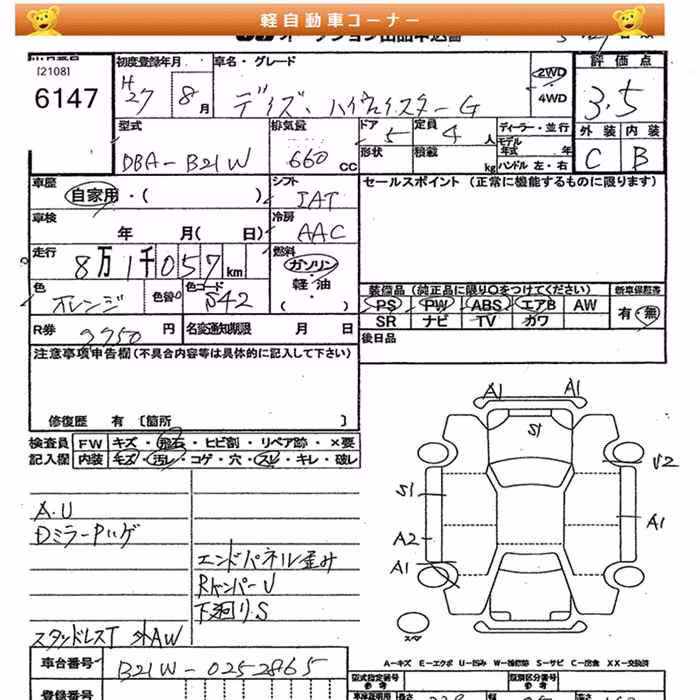 軽自動車コーナー
オークション出品申込書
[2108]
6147
初度登録年月 車名・グレード
H27 8月 デイズ、ハイウェイスターG
2WD
4WD
評価点
3.5
外装 内装
C B
型式 排気量 ドア 定員
DBA-B21W 660cc 5 4人
形状 積載 kg
ディーラー・並行
モデル年式 年
ハンドル左・右
車歴 シフト
自家用・( ) IAT
セールスポイント (正常に機能するものに限ります)
車検 冷房
年 月( 日) AAC
走行 燃料
8万1千057km ガソリン
軽・油
( )
色 色替 カラーコード
オレンジ
R券 円 名変通知期限 月 日
装備品 (純正品に限り○をつけてください) 新車保証書
PS PW ABS エアB AW
SR ナビ TV カワ
有・無
後日品
注意事項申告欄(不具合内容等は具体的に記入して下さい)
修復歴 有 〔箇所 〕
検査員 FW キズ・飛石・ヒビ割・リペア跡・×要
記入欄 内装 キズ・汚レ・コゲ・穴・スレ・キレ・破レ
A.U
DミラーPハゲ
エンドパネル歪み
RバンパーU
下廻りS
スタッドレスT 外AW
A1 A1
S1
U2
S1
A1
A2
A1
スペア
A-キズ E-エクボ U-凹み W-補修跡 S-サビ C-腐食 XX-交換済
車台番号 B21W-0252865
型式指定番号 類別区分番号
参考 参考
登録番号